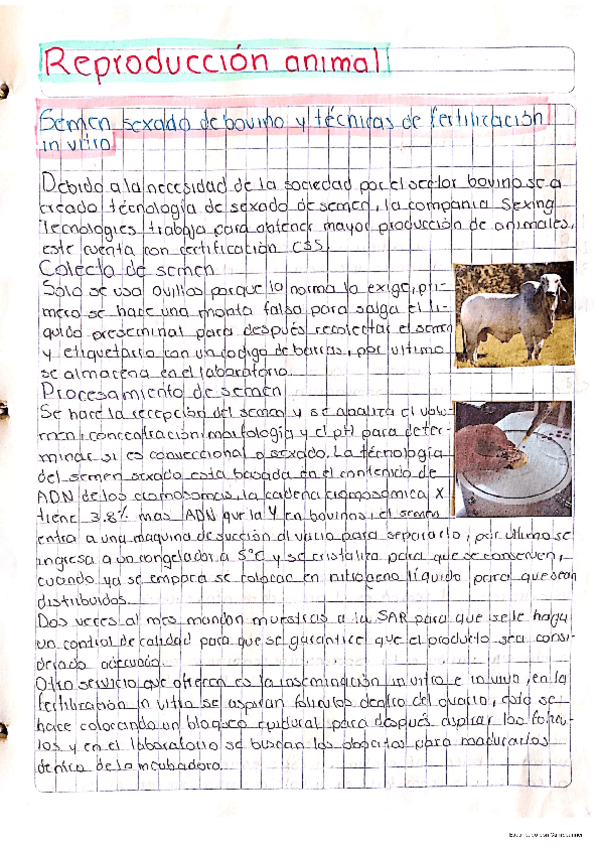 Reproducción animal
Semen sexado de bovino y técnicas de fertilización
in vitro
Debido a la necesidad de la sociedad por el sector bovino se a
creado tecnología de sexado de semen, la compañia Sexing
Tecnologies trabaja para obtener mayor producción de animales,
este cuenta con certificación CSS.
Colecta de semen
Solo se usa ovillos porque la norma lo exige, pri-
mero se hace una monta falsa para salga el li-
quido preseminal para después recolectar el semen
y etiquetarlo con un codigo de barras, por ultimo
se almacena en el laboratorio.
Procesamiento de semen
Se hace la recepción del semen y se analiza el volu-
men, concentración, morfología y el pH para deter-
minar si es conveccional o sexado. La tecnología
del semen sexado esta basada en el contenido de
ADN de los cromosomas, la cadena cromosómica X
tiene 3.8% mas ADN que la Y en bovinos, el semen
entra a una maquina de succión al vacio para separarlo, por ultimo se
ingresa a un congelador a 5°C y se cristaliza para que se conserven,
cuando ya se empara se colocar en nitrogeno líquido para que sean
distribuidos.
Dos veces al mes mandan muestras a la SAR para que se le haga
un control de calidad para que se garantice que el producto sea consi-
derado adecuado.
Otro servicio que ofrecen es la inseminación in vitro e in vivo, en la
fertilización in vitro se aspiran foliculos dentro del ovario, esto se
hace colocando un bloqueo epidural para después aspirar los folicu-
los y en el laboratorio se buscan los obocitos para madurarlos
dentro de la incubadora.